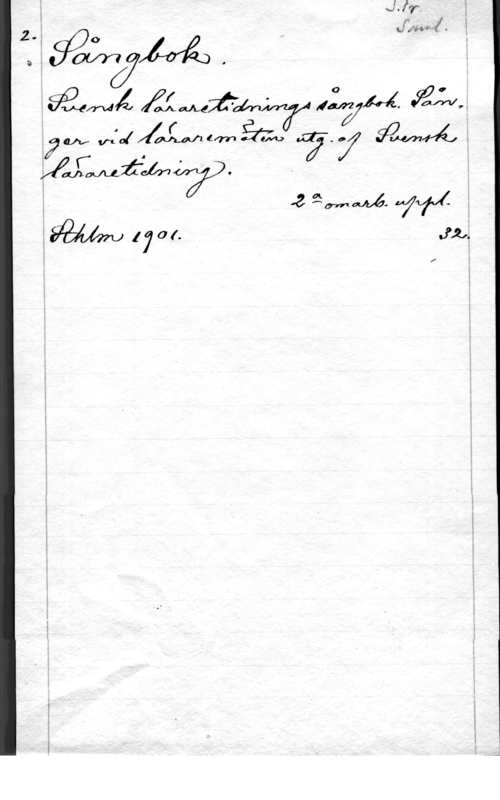 S.tr.
Saml.
2.
Sångbok.
Svensk läraretidnings sångbok. Sån-
ger vid läraremöten utg. af Svensk
läraretidning).
2a omarb. uppl.
Sthlm 1901. 32.